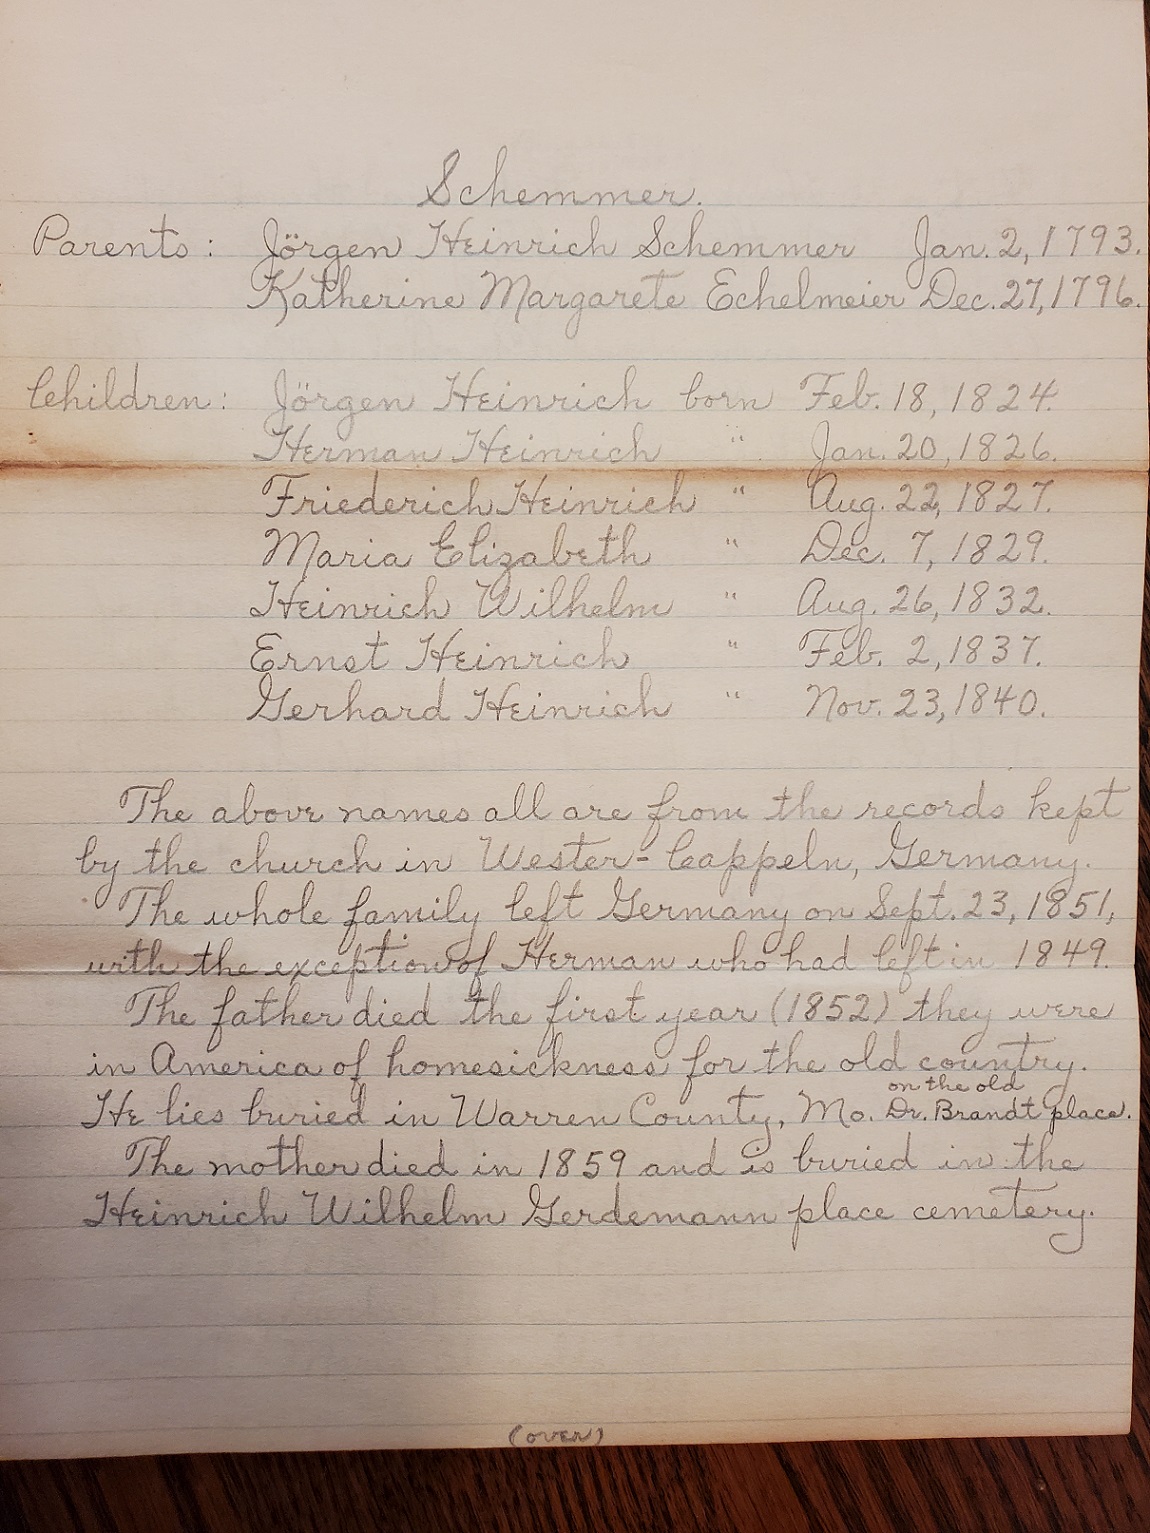 Schemmer.
Parents: Jörgen Heinrich Schemmer Jan. 2, 1793.
Katherine Margarete Echelmeier Dec. 27, 1796.
Children: Jörgen Heinrich born Feb. 18, 1824.
Herman Heinrich " Jan. 20, 1826.
Friederich Heinrich " Aug. 22, 1827.
Maria Elizabeth " Dec. 7, 1829.
Heinrich Wilhelm " Aug. 26, 1832.
Ernst Heinrich " Feb. 2, 1837.
Gerhard Heinrich " Nov. 23, 1840.
The above names all are from the records kept
by the church in Wester-Cappeln, Germany.
The whole family left Germany on Sept. 23, 1851,
with the exception of Herman who had left in 1849.
The father died the first year (1852) they were
in America of homesickness for the old country.
on the old
He lies buried in Warren County, Mo. Dr. Brandt place.
The mother died in 1859 and is buried in the
Heinrich Wilhelm Gerdemann place cemetery.
(over)